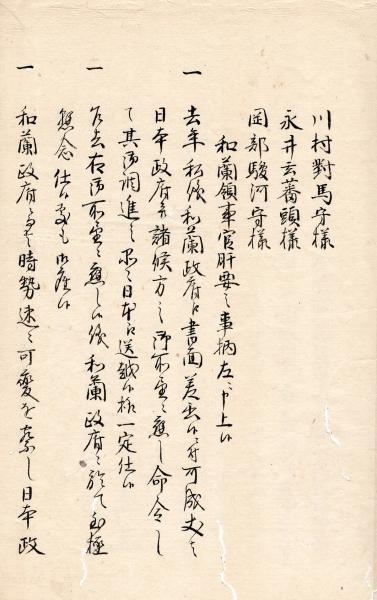 川村對馬守様
永井玄蕃頭様
岡部駿河守様
和蘭領事官肝要之事柄左ニ申上候
一 去年私儀和蘭政府江書面差出候ニ付可成丈ケ
日本政府并諸候方之御所望ニ應し命令し
て其御調進之品々日本江送越候様一定仕候
一 乍去右御所望ニ應し候儀和蘭政府ニ於て至極
懸念仕候
一 和蘭政府ニ而者時勢速ニ可變を察し日本政